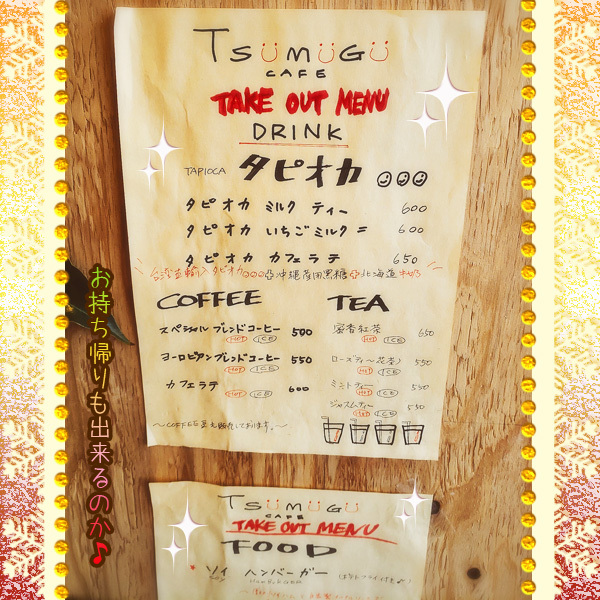 TSUMUGU
CAFE
TAKE OUT MENU
DRINK
TAPIOCA タピオカ
タピオカ ミルク ティー 600
タピオカ いちごミルク 600
タピオカ カフェラテ 650
台湾直輸入タピオカ 沖縄産黒糖 北海道
COFFEE
スペシャルブレンドコーヒー 500
HOT ICE
ヨーロピアンブレンドコーヒー 550
HOT ICE
カフェラテ 600
HOT ICE
〜COFFEE豆も販売しております。〜
TEA
蜜香紅茶 650
HOT ICE
ローズティー 550
HOT ICE
ミントティー 550
HOT ICE
ジャスミンティー 550
HOT ICE
お持ち帰りも出来るのか♪
TSUMUGU
CAFE
TAKE OUT MENU
FOOD
ソイ ハンバーガー